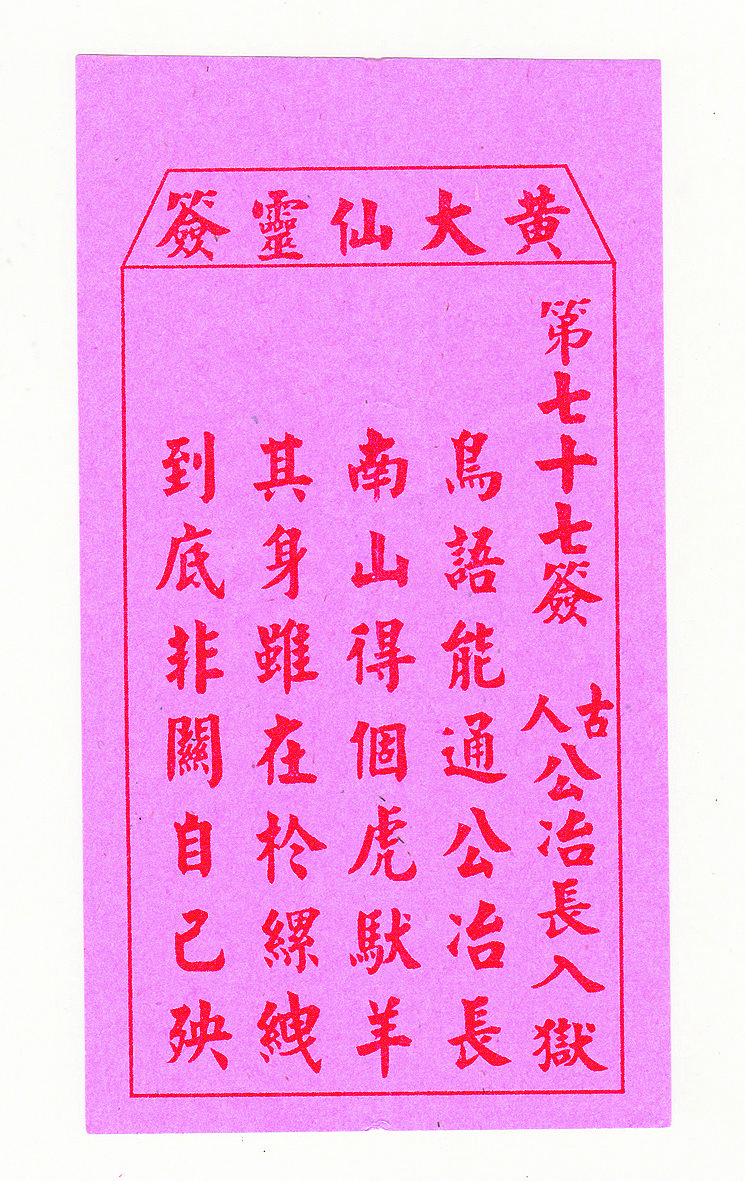 黃大仙靈簽
第七十七簽 古人公冶長入獄
鳥語能通公冶長
南山得個虎馱羊
其身雖在於縲絏
到底非關自己殃